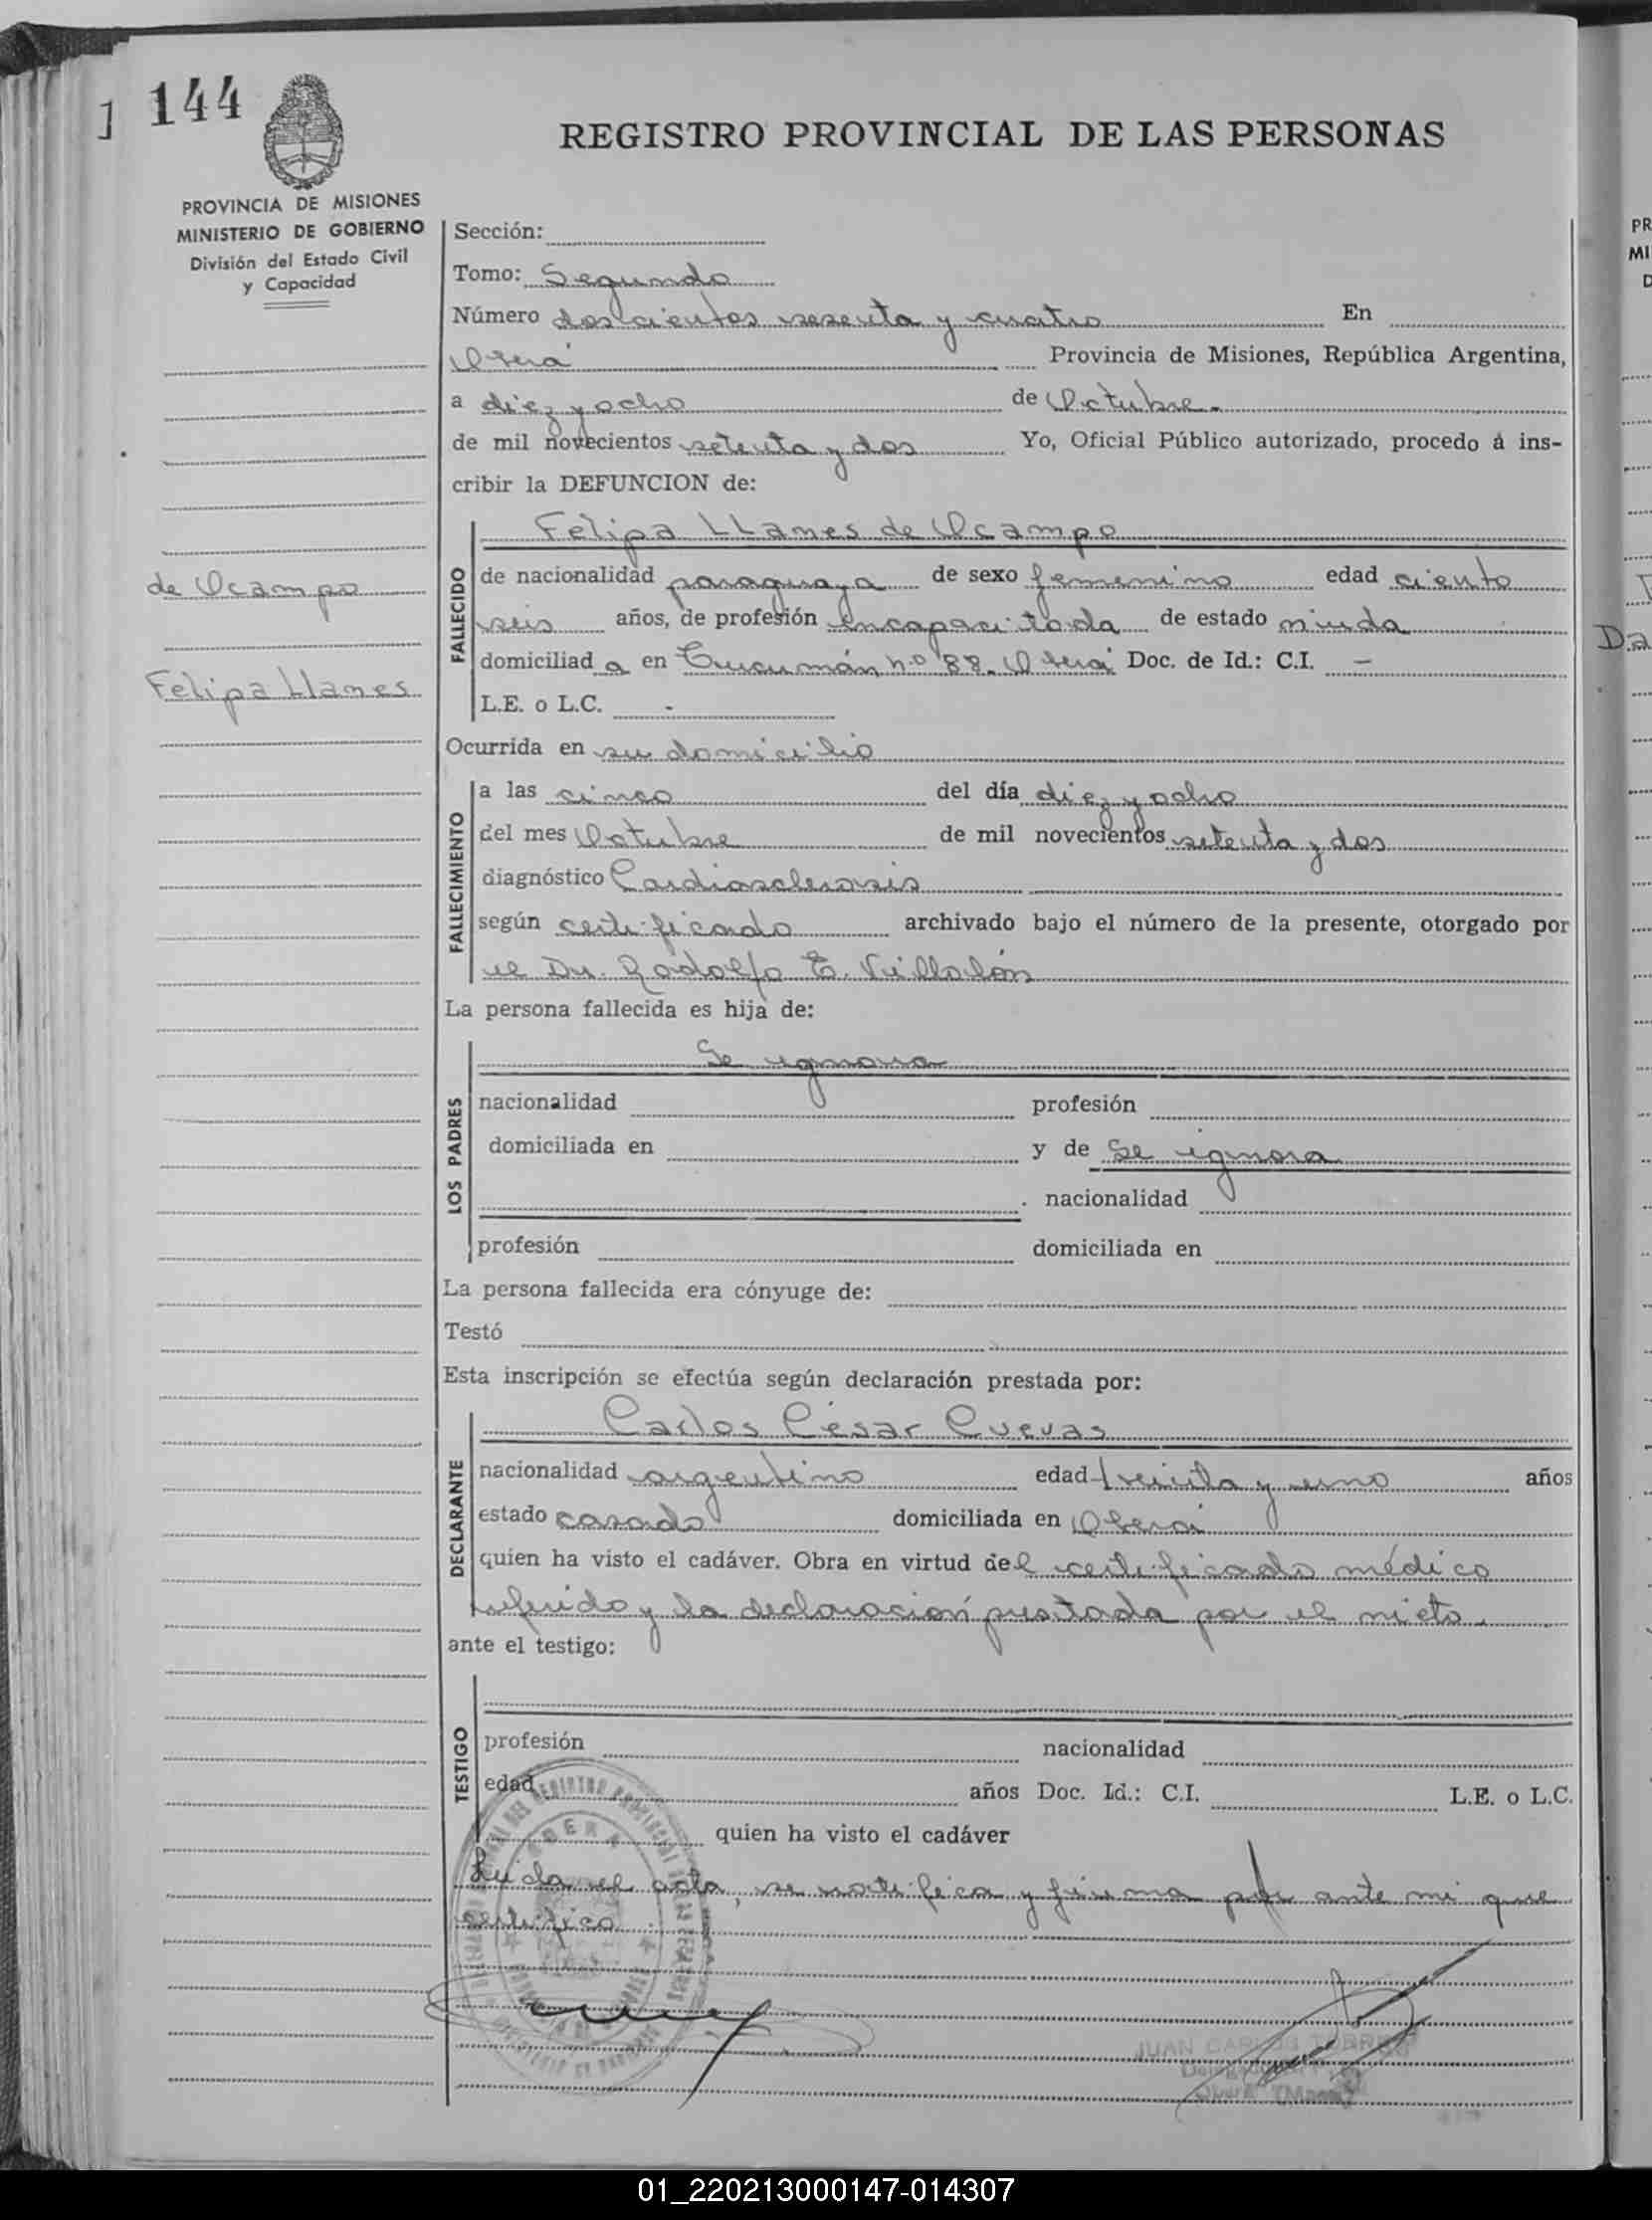 1 144
REGISTRO PROVINCIAL DE LAS PERSONAS
PROVINCIA DE MISIONES
MINISTERIO DE GOBIERNO
División del Estado Civil
y Capacidad
Sección:
Tomo: Segundo
Número doscientos sesenta y cuatro En
Oberá Provincia de Misiones, República Argentina,
a diez y ocho de Octubre.
de mil novecientos setenta y dos Yo, Oficial Público autorizado, procedo á ins-
cribir la DEFUNCION de:
de Ocampo
Felipa Llanes
FALLECIDO
Felipa Llanes de Ocampo
de nacionalidad paraguaya de sexo femenino edad ciento
seis años, de profesión incapacitada de estado viuda
domiciliad a en Tucumán nº 88. Oberá Doc. de Id.: C.I. —
L.E. o L.C. -
Ocurrida en su domicilio
FALLECIMIENTO
a las cinco del día diez y ocho
del mes Octubre de mil novecientos setenta y dos
diagnóstico Cardiosclerosis
según certificado archivado bajo el número de la presente, otorgado por
el Dr. Rodolfo E. Villalón
La persona fallecida es hija de:
LOS PADRES
Se ignora
nacionalidad profesión
domiciliada en y de Se ignora
. nacionalidad
profesión domiciliada en
La persona fallecida era cónyuge de:
Testó
Esta inscripción se efectúa según declaración prestada por:
DECLARANTE
Carlos César Cuevas
nacionalidad argentino edad treinta y uno años
estado casado domiciliada en Oberá
quien ha visto el cadáver. Obra en virtud del certificado médico
referido y la declaración prestada por el nieto.
ante el testigo:
TESTIGO
profesión nacionalidad
edad años Doc. Id.: C.I. L.E. o L.C.
quien ha visto el cadáver
Leida el acta, se notifica y firma por ante mi que
certifico.
OBERA
JUAN CARLOS TORRES
01_220213000147-014307